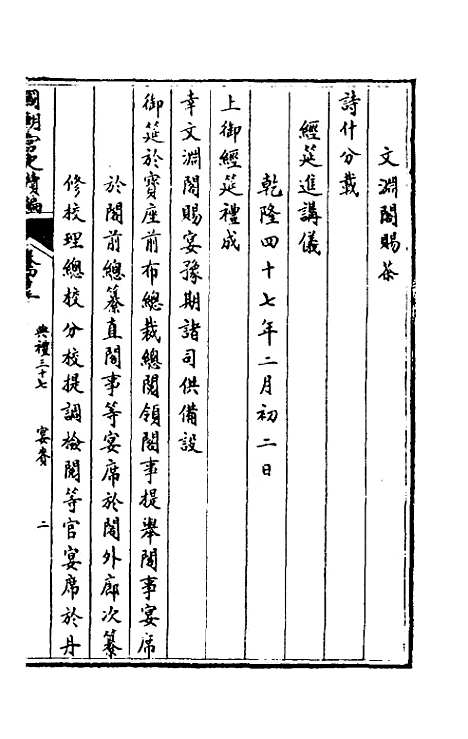 文淵閣賜茶
詩什分載
經筵進講儀
乾隆四十七年二月初二日
上御經筵禮成
幸文淵閣賜宴豫期諸司供備設
御筵於寶座前布總裁總閱領閣事提舉閣事宴席
於閣前總纂直閣事等宴席於閣外廊次纂
修校理總校分校提調檢閱等官宴席於丹
國朝宮史續編
典禮三十七
宴賚
二